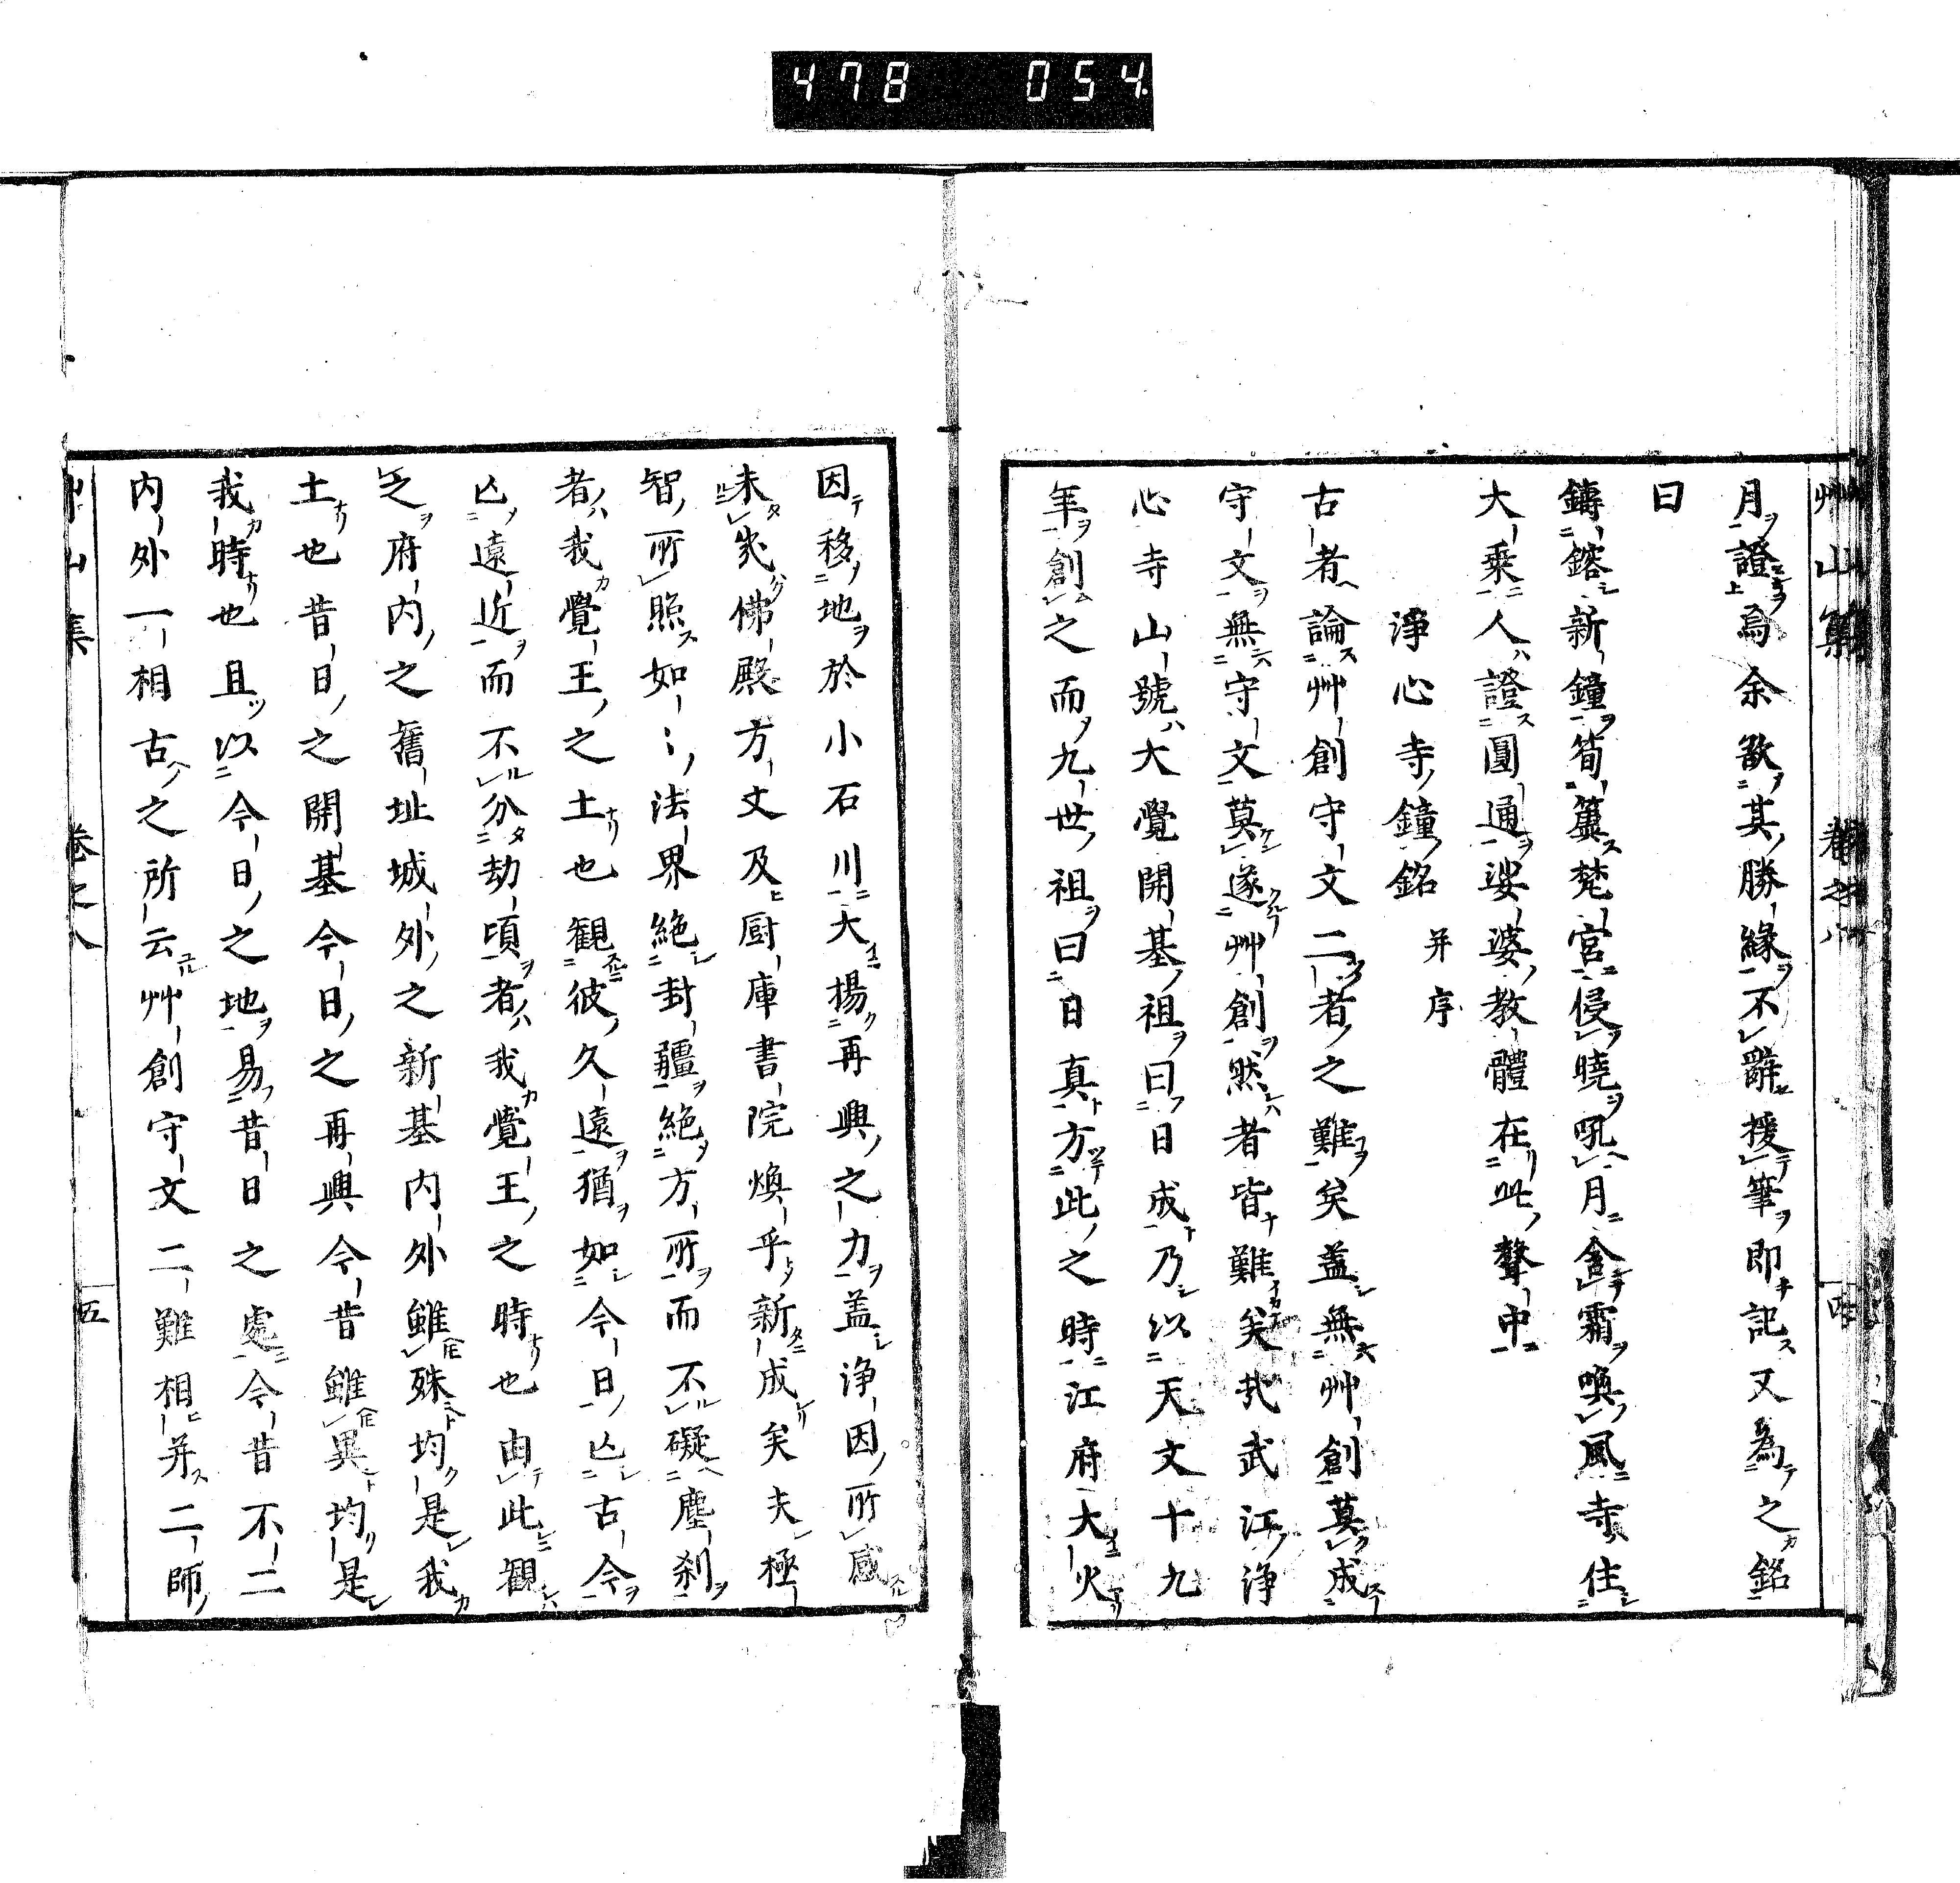 478 054
艸山集 卷之八 四
月證焉余歆其勝緣不辭援筆即記又為之銘
曰
鑄鎔新鐘筍簴梵宮侵曉吼月含霜喚風寺住
大乘人證圓通娑婆教體在此聲中
淨心寺鐘銘 并序
古者論艸創守文二者之難矣蓋無艸創莫成
守文無守文莫遂艸創然者皆難矣武江淨
心寺山號大覺開基祖曰日成乃以天文十九
年創之而九世祖曰日真方此之時江府大火
因移地於小石川大揚再興之力蓋淨因所感
未幾佛殿方丈及厨庫書院煥乎新成矣夫極
智所照如〻法界絶封疆絶方所而不礙塵刹
者我覺王之土也觀彼久遠猶如今日亾古今
亾遠近而不分劫頃者我覺王之時也由此觀
之府内之舊址城外之新基内外雖殊均是我
土也昔日之開基今日之再興今昔雖異均是
我時也且以今日之地易昔日之處今昔不二
内外一相古之所云艸創守文二難相并二師
艸山集 卷之八 五